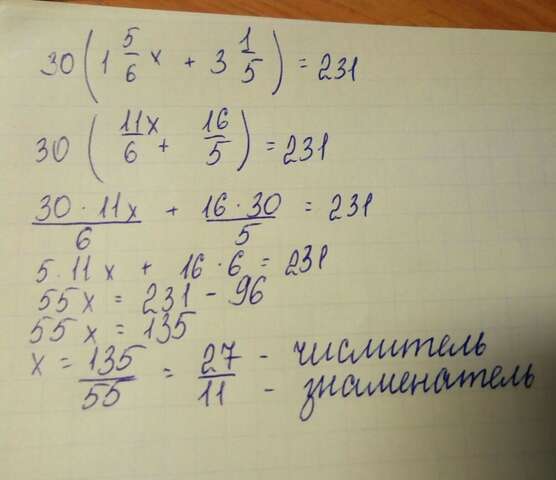 30(1 5/6 x + 3 1/5) = 231
30(11x/6 + 16/5) = 231
30 · 11x/6 + 16 · 30/5 = 231
5 · 11x + 16 · 6 = 231
55x = 231 - 96
55x = 135
x = 135/55 = 27/11 - числитель - знаменатель